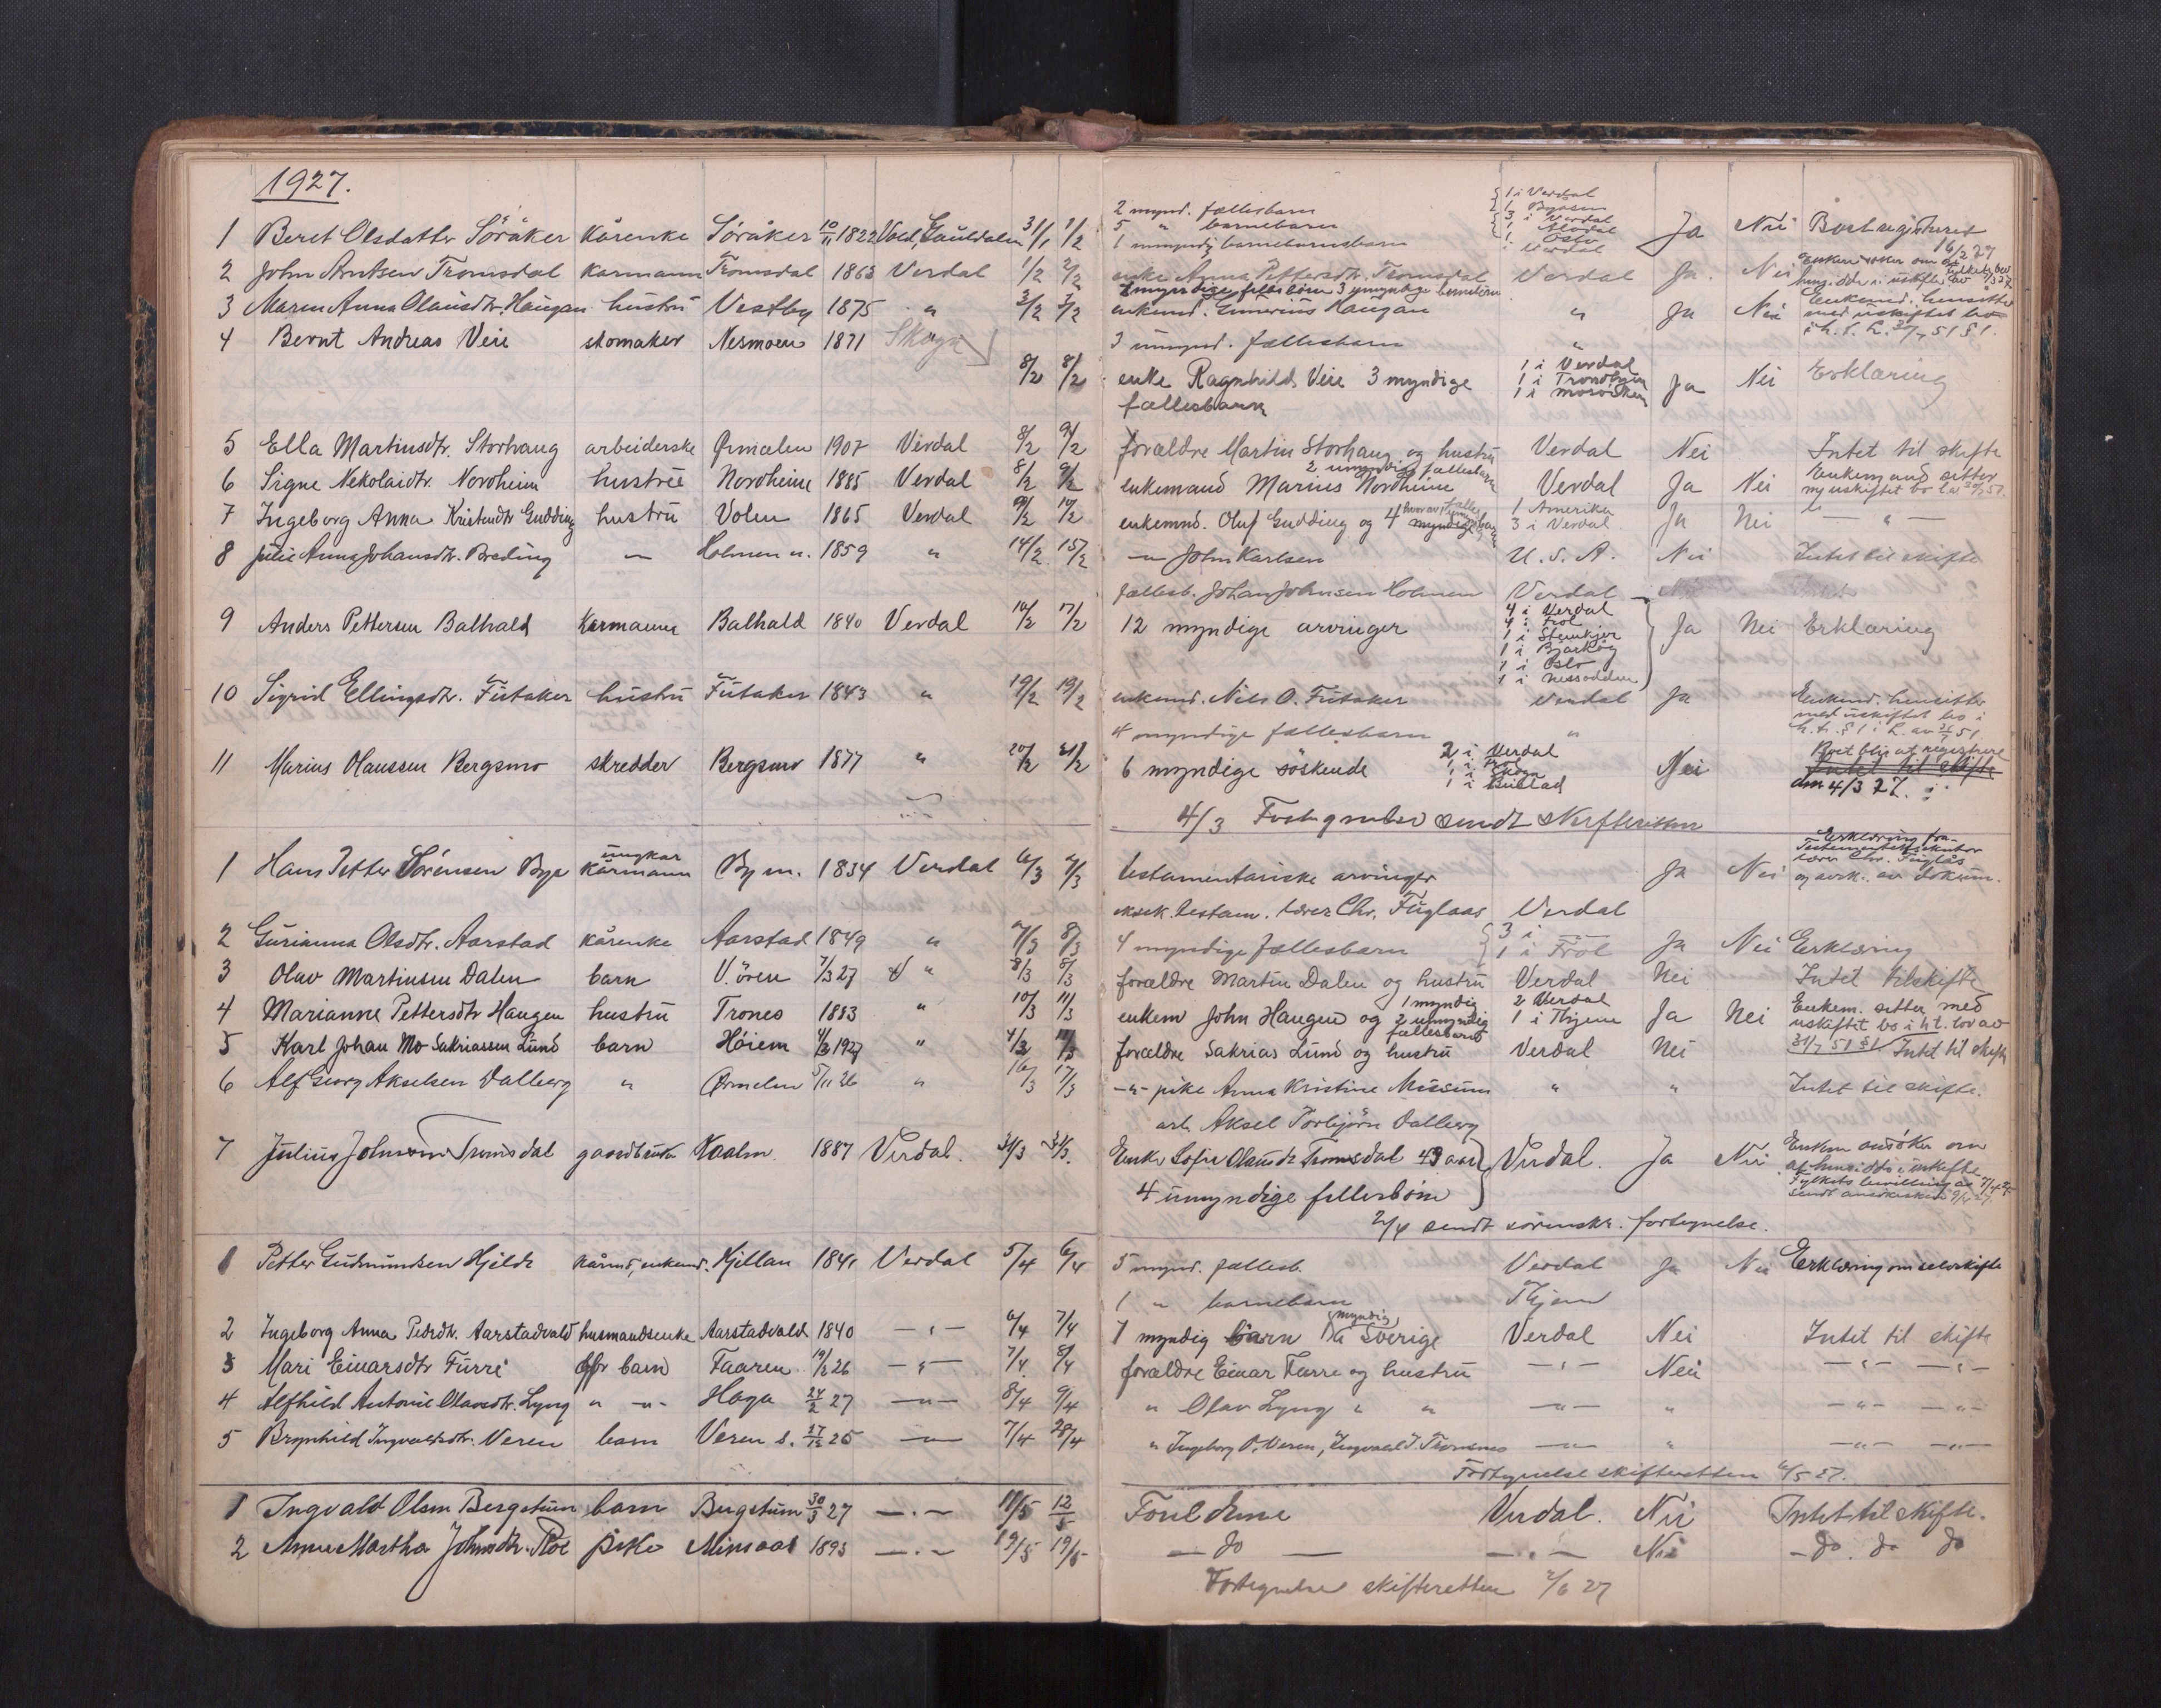 1927.
1 Beret Olsdatter Söråker kårenke Söråker 10/11 1822 Vold, Gauldalen 31/1 1/2 2 mynd. fællesbarn 5 " barnebarn 1 umyndig barnebarnsbarn { 1 i Verdal 1 Byåsen { 3 i Verdal 1 Oslo Verdal Ja Nei Boet registreret 16/2 27
2 John Arntsen Tromsdal kårmann Tromsdal 1863 Verdal 1/2 2/2 enke Anna Pettersdtr. Tromsdal Verdal Ja. Nei
3 Maren Anna Olausdtr. Haugan hustru Vestby 1875 " 3/2 3/2 enkemd. Gunerius Haugan " Ja Nei Enkemd. hensitter med uskiftet bo
4 Bernt Andreas Veie skomaker Nesmoen 1871 Skogn 3 umynd. fællesbarn "
8/2 8/2 enke Ragnhild Veie 3 myndige fællesbarn 1 i Verdal 1 i Trondhjem 1 i Ja Nei Erklæring
5 Ella Martinsdtr. Storhaug arbeiderske Ørmelen 1907 Verdal 8/2 9/2 forældre Martin Storhaug og hustru Verdal Nei Intet til skifte
6 Signe Nekolaidtr. Nordheim hustru Nordheim 1885 Verdal 8/2 9/2 enkemand Marius Nordheim 2 umyndig fællesbarn Verdal Ja Nei Enkemand sitter
7 Ingeborg Anna Kristendtr Gudding hustru Volen 1865 Verdal 9/2 10/2 enkemnd. Oluf Gudding og 4 myndige 1 Amerika 3 i Verdal Ja Nei — " —
8 Julie Anna Johansdtr. Breding — Holmen n. 1859 " 14/2 15/2 — John Karlsen U.S.A. Nei Intet til skifte
fællesb. Johan Johnsen Holmen Verdal
9 Anders Pettersen Balhald Kårmann Balhald 1840 Verdal 16/2 17/2 12 myndige arvinger 4 i Verdal 4 i Frol 1 i Stenkjer 1 i Bjarkøy 1 i Oslo 1 i Nessodden Ja Nei Erklæring
10 Sigrid Ellingsdtr. Futaker hustru Futaker 1843 " 19/2 19/2 enkemd. Nils O. Futaker Verdal Ja Enkemd. hensitter med uskiftet bo i
4 myndige fællesbarn "
11 Marius Olaussen Bergsmo skredder Bergsmo 1877 " 20/2 21/2 6 myndige söskende 2 i Verdal 1 i Frol 1 i Skogn 1 i Nei Boet blir at registrere Intet til skifte den 4/3 27.
4/3 Fortegnelse sendt Skifteretten
1 Hans Petter Sörensen Bye ungkar kårmann By m. 1834 Verdal 6/3 7/3 testamentariske arvinger Ja Nei Erklæring fra
eksek. testam. lærer Chr. Fuglaas Verdal
2 Gurianna Olsdtr. Aarstad kårenke Aarstad 1849 " 7/3 8/3 4 myndige fællesbarn { 3 i — 1 i Frol Ja Nei Erklæring
3 Olav Martinsen Dalen barn V.ören 7/3 27 " 8/3 8/3 forældre Martin Dalen og hustru Verdal Nei Intet tilskifte
4 Marianne Pettersdtr Haugen hustru Trones 1883 " 10/3 11/3 enkem John Haugen og 1 myndig 2 umyndig fællesbarn 2 Verdal 1 i Thjem Ja Nei Enkem. sitter med uskiftet bo i h.t. lov av
5 Karl Johan Mo Sakriassen Lund barn Höiem 4/3 1927 " 4/3 11/3 forældre Sakrias Lund og hustru Verdal Nei 31/7 51 §1 Intet til skifte
6 Alf Georg Akselsen Dalberg " Ørmelen 5/11 26 " 16/3 17/3 -"- pike Anna Kristine Missum " " Intet til skifte.
arb. Aksel Torbjörn Dalberg
7 Julius Johnsen Tromsdal gaardbruker Kvalm 1887 Verdal. 31/3 31/3. Enke Sofie Olausdtr Tromsdal 43 aar Verdal. Ja Nei Enken ansöker om
4 umyndige fellesbörn
2/4 sendt sorenskr. fortegnelse.
1 Petter Gudmundsen Hjelde kårmd, enkemd. Kjellan 1841 Verdal 5/4 6/4 5 mynd. fællesb. Verdal Ja Nei Erklæring om selvskifte
1 " barnebarn Thjem
2 Ingeborg Anna Pedrdtr. Aarstadvald husmandsenke Aarstadvald 1840 — " — 6/4 7/4 1 myndig barn myndig Sverige Verdal Nei Intet til skifte
3 Mari Einarsdtr Furre barn Faaren 19/3 26 — " — 7/4. 8/4 forældre Einar Furre og hustru — " — Nei — " — — " —
4 Alfhild Antonie Olavsdtr. Lyng " -"- Haga 24/2 27 — " — 8/4 9/4 " Olav Lyng " " — " — " — " — — " —
5 Brynhild Ingvaldsdtr. Veren barn Veren s. 27/12 25 — " — 7/4 28/4 " Ingeborg P. Veren, Ingvald J. — " — " — " — — " —
Fortegnelse skifteretten 6/5 27.
1 Ingvald Olsen Bergstum barn Bergstum 30/3 27 — " — 11/5 12/5 Foreldrene Verdal. Nei Intet til skifte.
2 Anna Martha Johnsdtr. Roe pike Minsaas 1893 — " — 19/5 19/5 — do — — " — Nei — do. do do
Fortegnelse skifteretten 2/6 27